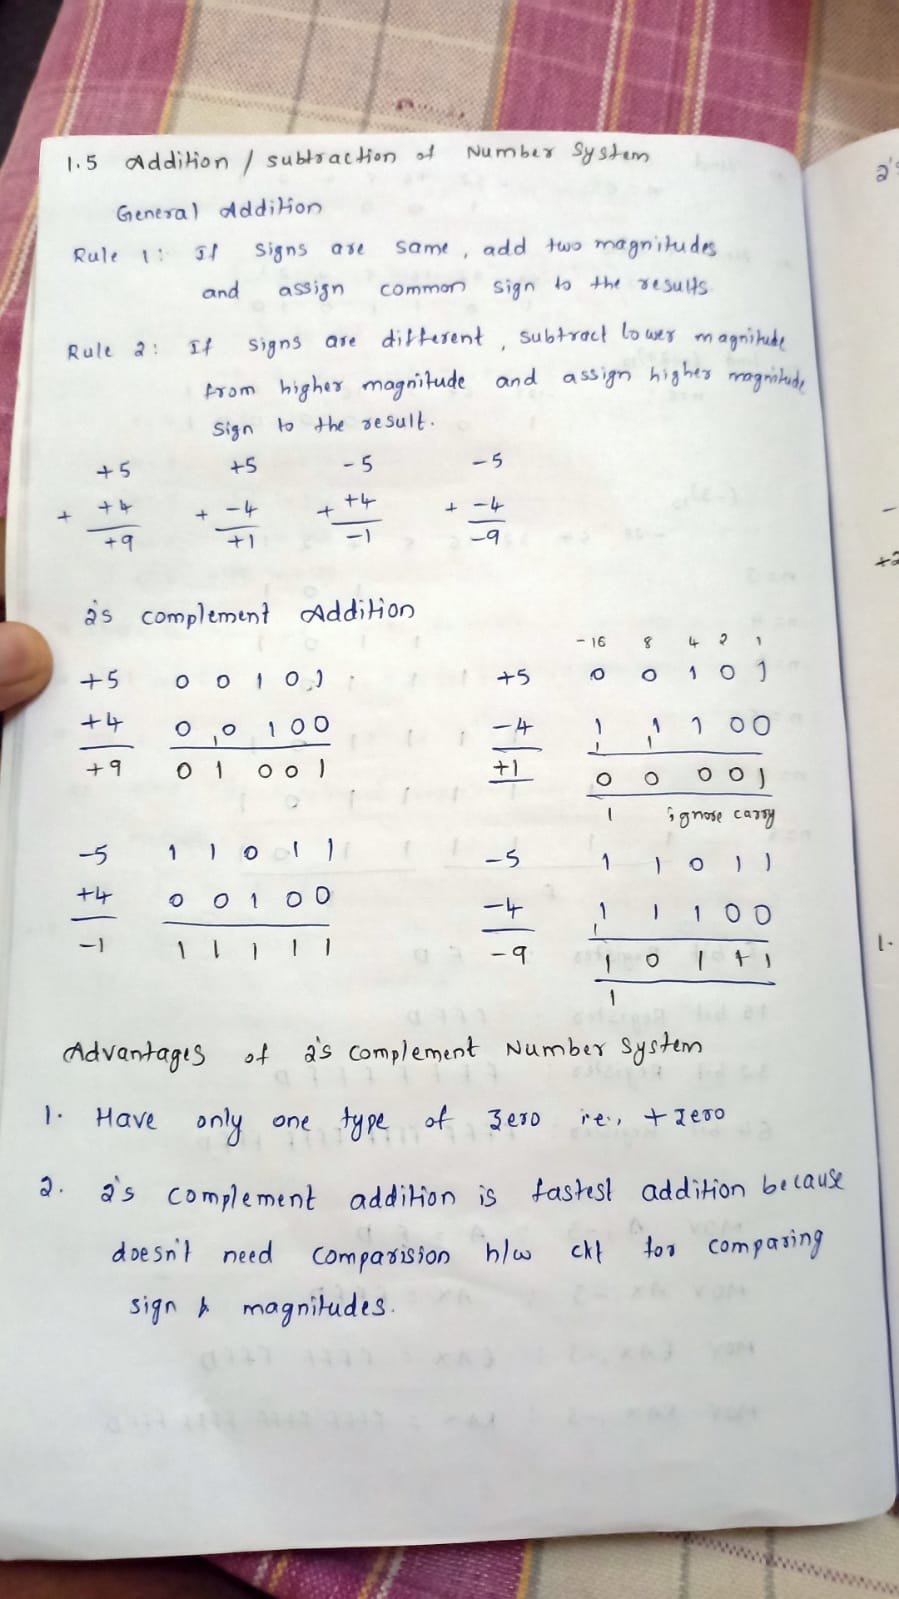 1.5 Addition / subtraction of Number System
General Addition
Rule 1: If signs are same, add two magnitudes
and assign common sign to the results
Rule 2: If signs are different, subtract lower magnitude
from higher magnitude and assign higher magnitude
sign to the result.
+5 +5 -5 -5
+ +4 + -4 + +4 + -4
+9 +1 -1 -9
2's complement Addition
-16 8 4 2 1
+5 0 0 1 0 1 +5 0 0 1 0 1
+4 0 0 1 0 0 -4 1 1 1 0 0
1 1 1
+9 0 1 0 0 1 +1 0 0 0 0 1
1 ignore carry
-5 1 1 0 1 1 -5 1 1 0 1 1
+4 0 0 1 0 0 -4 1 1 1 0 0
1
-1 1 1 1 1 1 -9 1 0 1 1 1
1
Advantages of 2's complement Number System
1. Have only one type of zero ie., + zero
2. 2's complement addition is fastest addition because
doesn't need comparision h/w ckt for comparing
sign & magnitudes.
2's
-
+2
1.